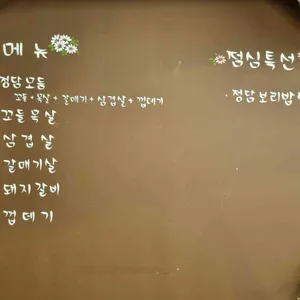 메뉴
정담모듬
꼬들+목살+갈매기+삼겹살+껍데기
꼬들목살
삼겹살
갈매기살
돼지갈비
껍데기
점심특선
· 정담보리밥